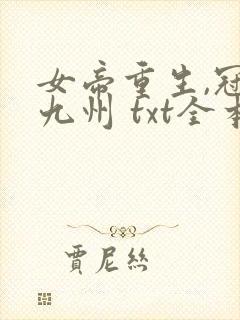 女帝重生,冠
九州 txt全本
賈尼絲